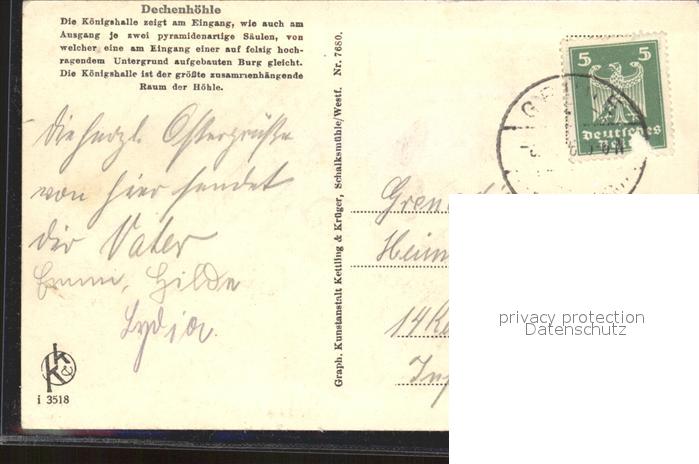 Dechenhöhle
Die Königshalle zeigt am Eingang, wie auch am
Ausgang je zwei pyramidenartige Säulen, von
welcher eine am Eingang einer auf felsig hoch-
ragendem Untergrund aufgebauten Burg gleicht.
Die Königshalle ist der größte zusammenhängende
Raum der Höhle.
Die herzl. Ostergrüße
von hier sendet
dir Vater
Emmi, Hilde
Lydia.
i 3518
Graph. Kunstanstalt Kettling & Krüger, Schalksmühle/Westf. Nr. 7680.
5 5
Deutsches
Gren
Heim
14
privacy protection
Datenschutz